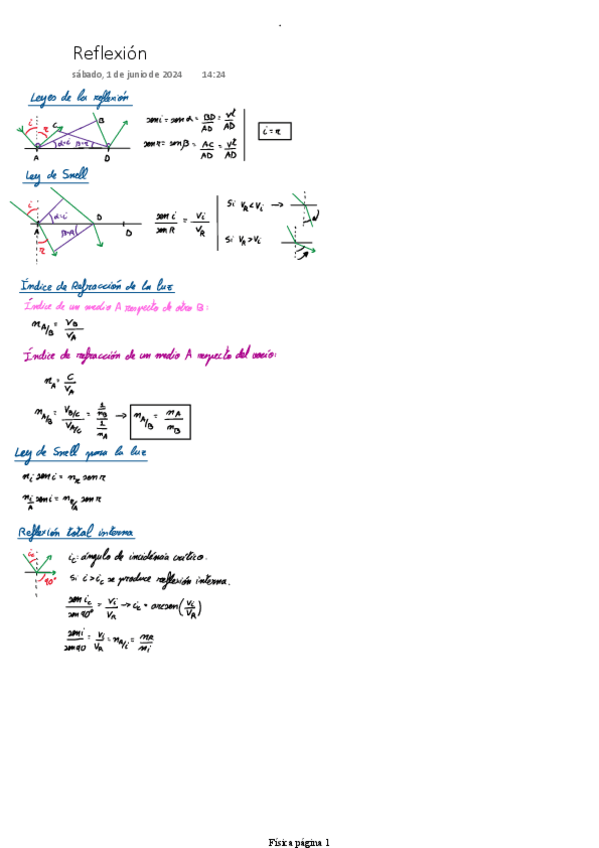 Reflexión
sábado, 1 de junio de 2024 14:24
Leyes de la reflexión
i r C B
α=i β=r
A D
sen i = sen α = BD/AD = vt/AD
sen r = sen β = AC/AD = vt/AD
i = r
Ley de Snell
i α=i B
A β=R D
r
sen i / sen R = Vi / VR
Si VR < Vi →
Si VR > Vi
Índice de Refracción de la luz
Índice de un medio A respecto de otro B:
nA/B = VB/VA
Índice de refracción de un medio A respecto del vacío:
nA = C/VA
nA/B = (VB/C)/(VA/C) = (1/nB)/(1/nA) → nA/B = nA/nB
Ley de Snell para la luz
ni sen i = nR sen R
ni/A sen i = nR/A sen R
Reflexión total interna
ic 90°
ic: ángulo de incidencia crítico.
Si i > ic se produce reflexión interna.
sen ic / sen 90° = Vi/VR → ic = arcsen(Vi/VR)
sen i / sen 90 = Vi/VR = nR/i = nR/ni
Física página 1